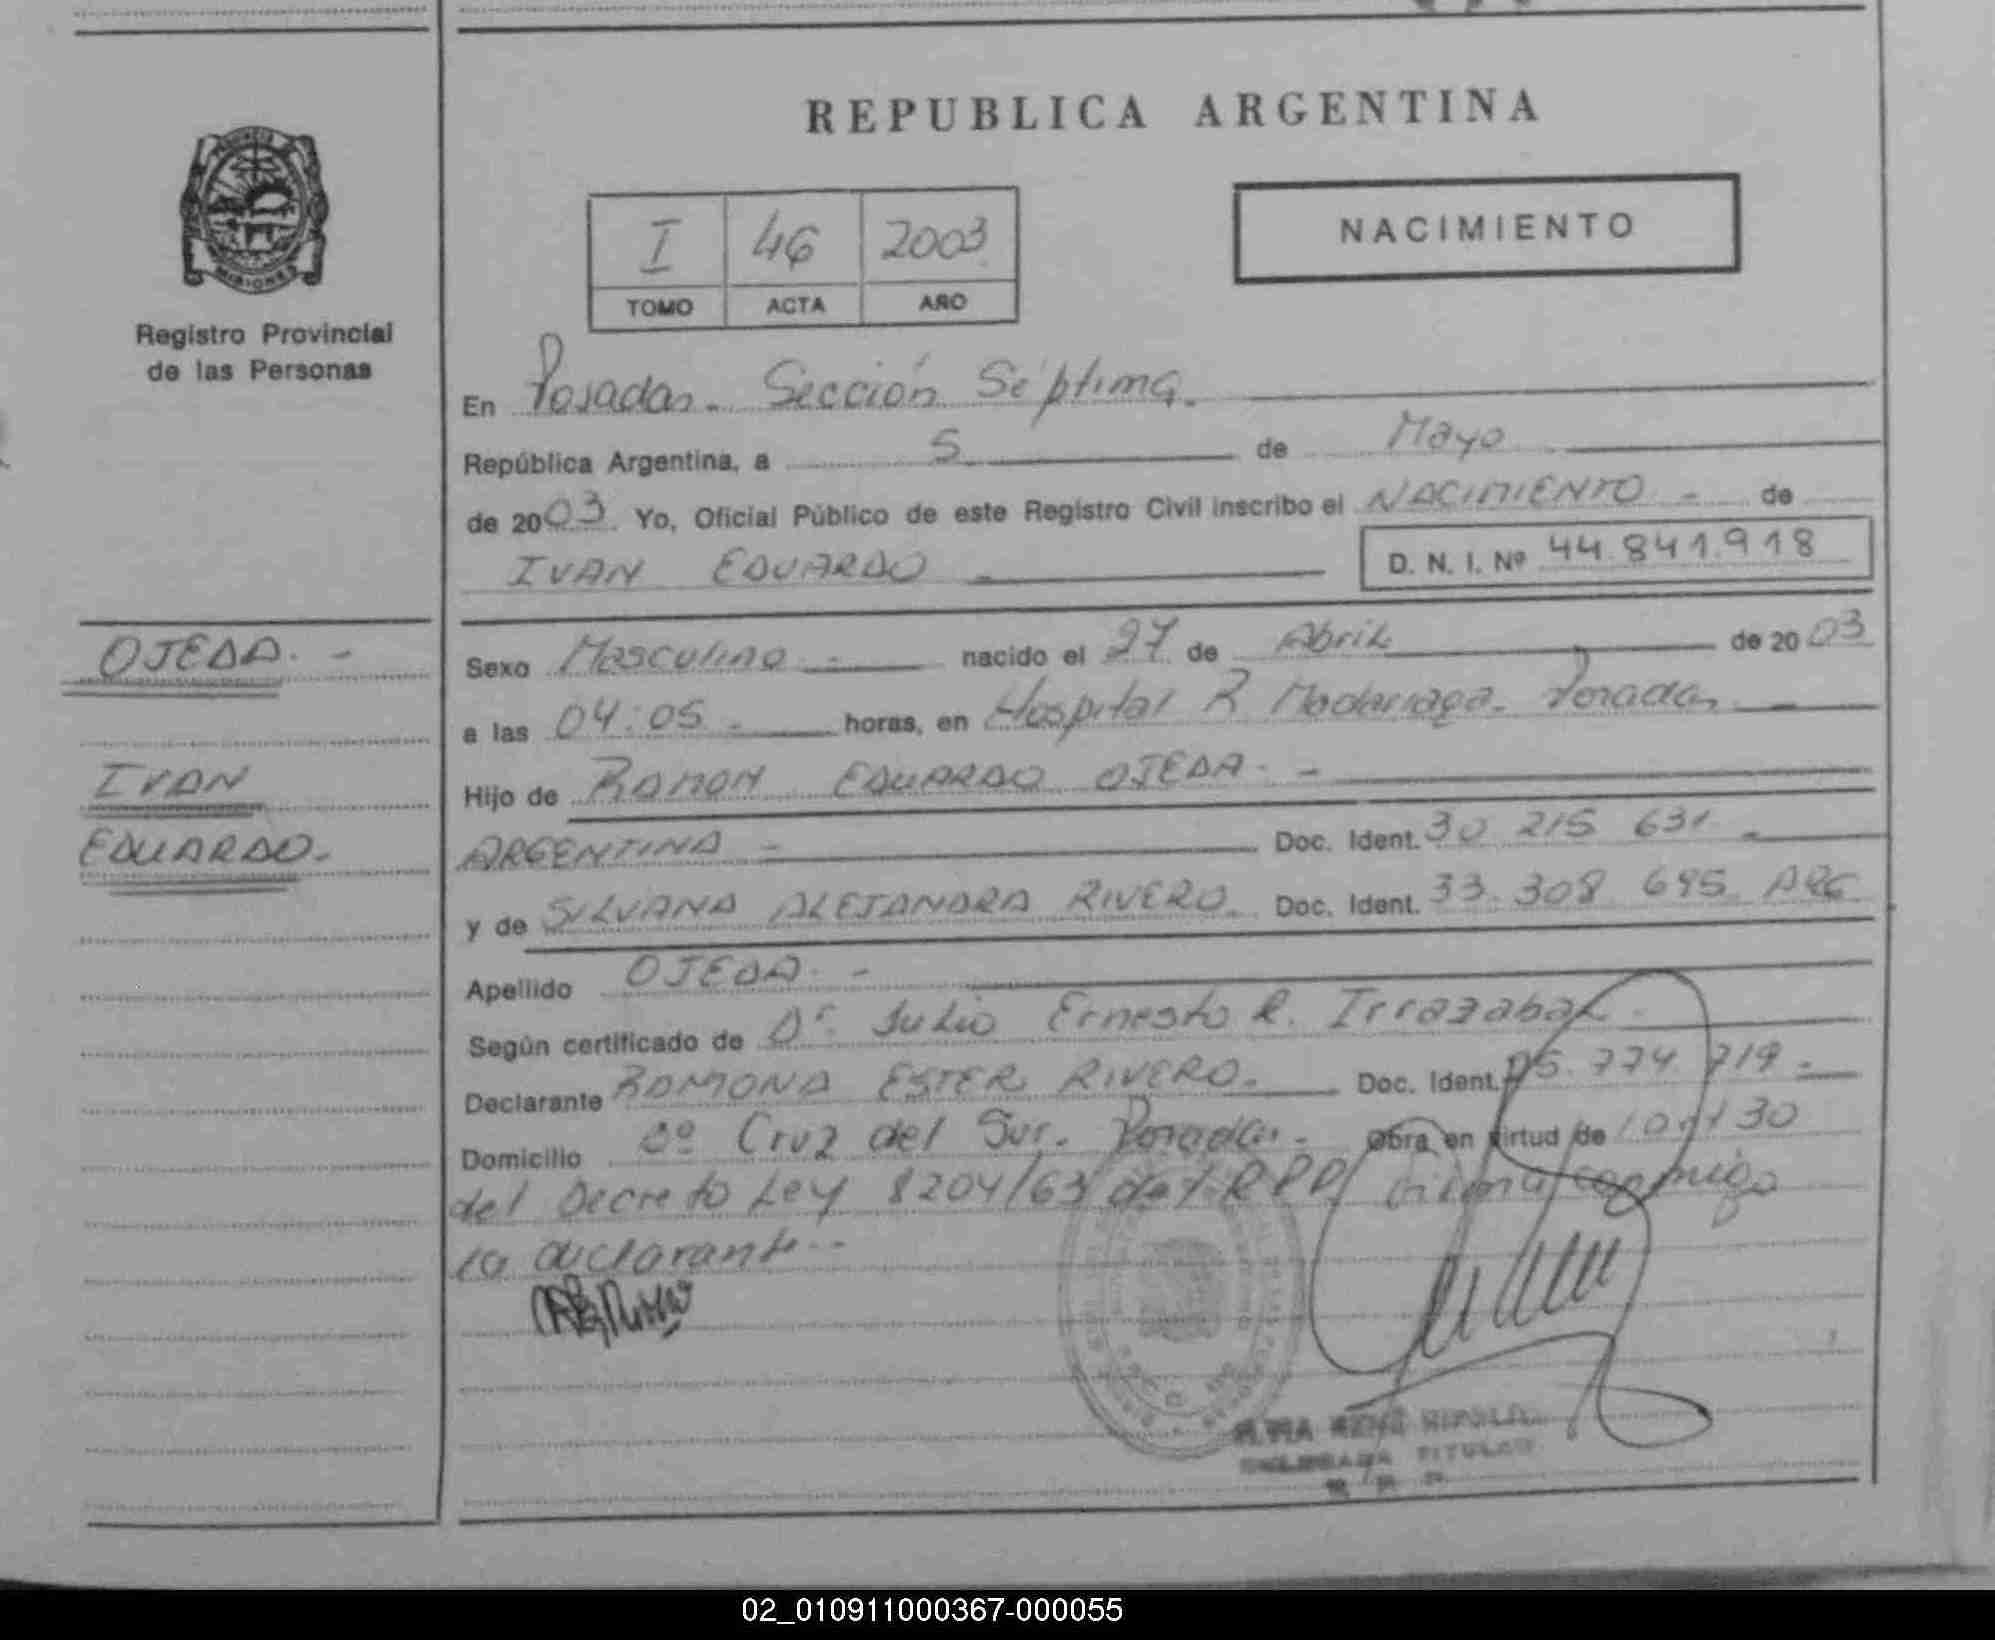 REPUBLICA ARGENTINA
PROVINCIA
MISIONES
Registro Provincial
de las Personas
I 46 2003
TOMO ACTA AÑO
NACIMIENTO
En Posadas. Sección Séptima.
República Argentina, a 5 de Mayo
de 2003. Yo, Oficial Público de este Registro Civil inscribo el NACIMIENTO - de
IVAN EDUARDO
D. N. I. Nº 44.841.918
OJEDA. -
IVAN
EDUARDO. -
Sexo Masculino - nacido el 27 de Abril de 2003
a las 04:05 - horas, en Hospital R. Madariaga. Posadas
Hijo de RAMON EDUARDO OJEDA. -
ARGENTINA - Doc. Ident. 30 215 631 -
y de SILVANA ALEJANDRA RIVERO. Doc. Ident. 33.308 695 ARG
Apellido OJEDA. -
Según certificado de Dr. Julio Ernesto R. Irrazabal.
Declarante RAMONA ESTER RIVERO. Doc. Ident. 774 719 -
Domicilio Bº Cruz del Sur. Posadas. Obra en virtud de 30
del Decreto Ley 8204/63 del RPP firma conmigo
la declarante. -
TITULAR
02_010911000367-000055